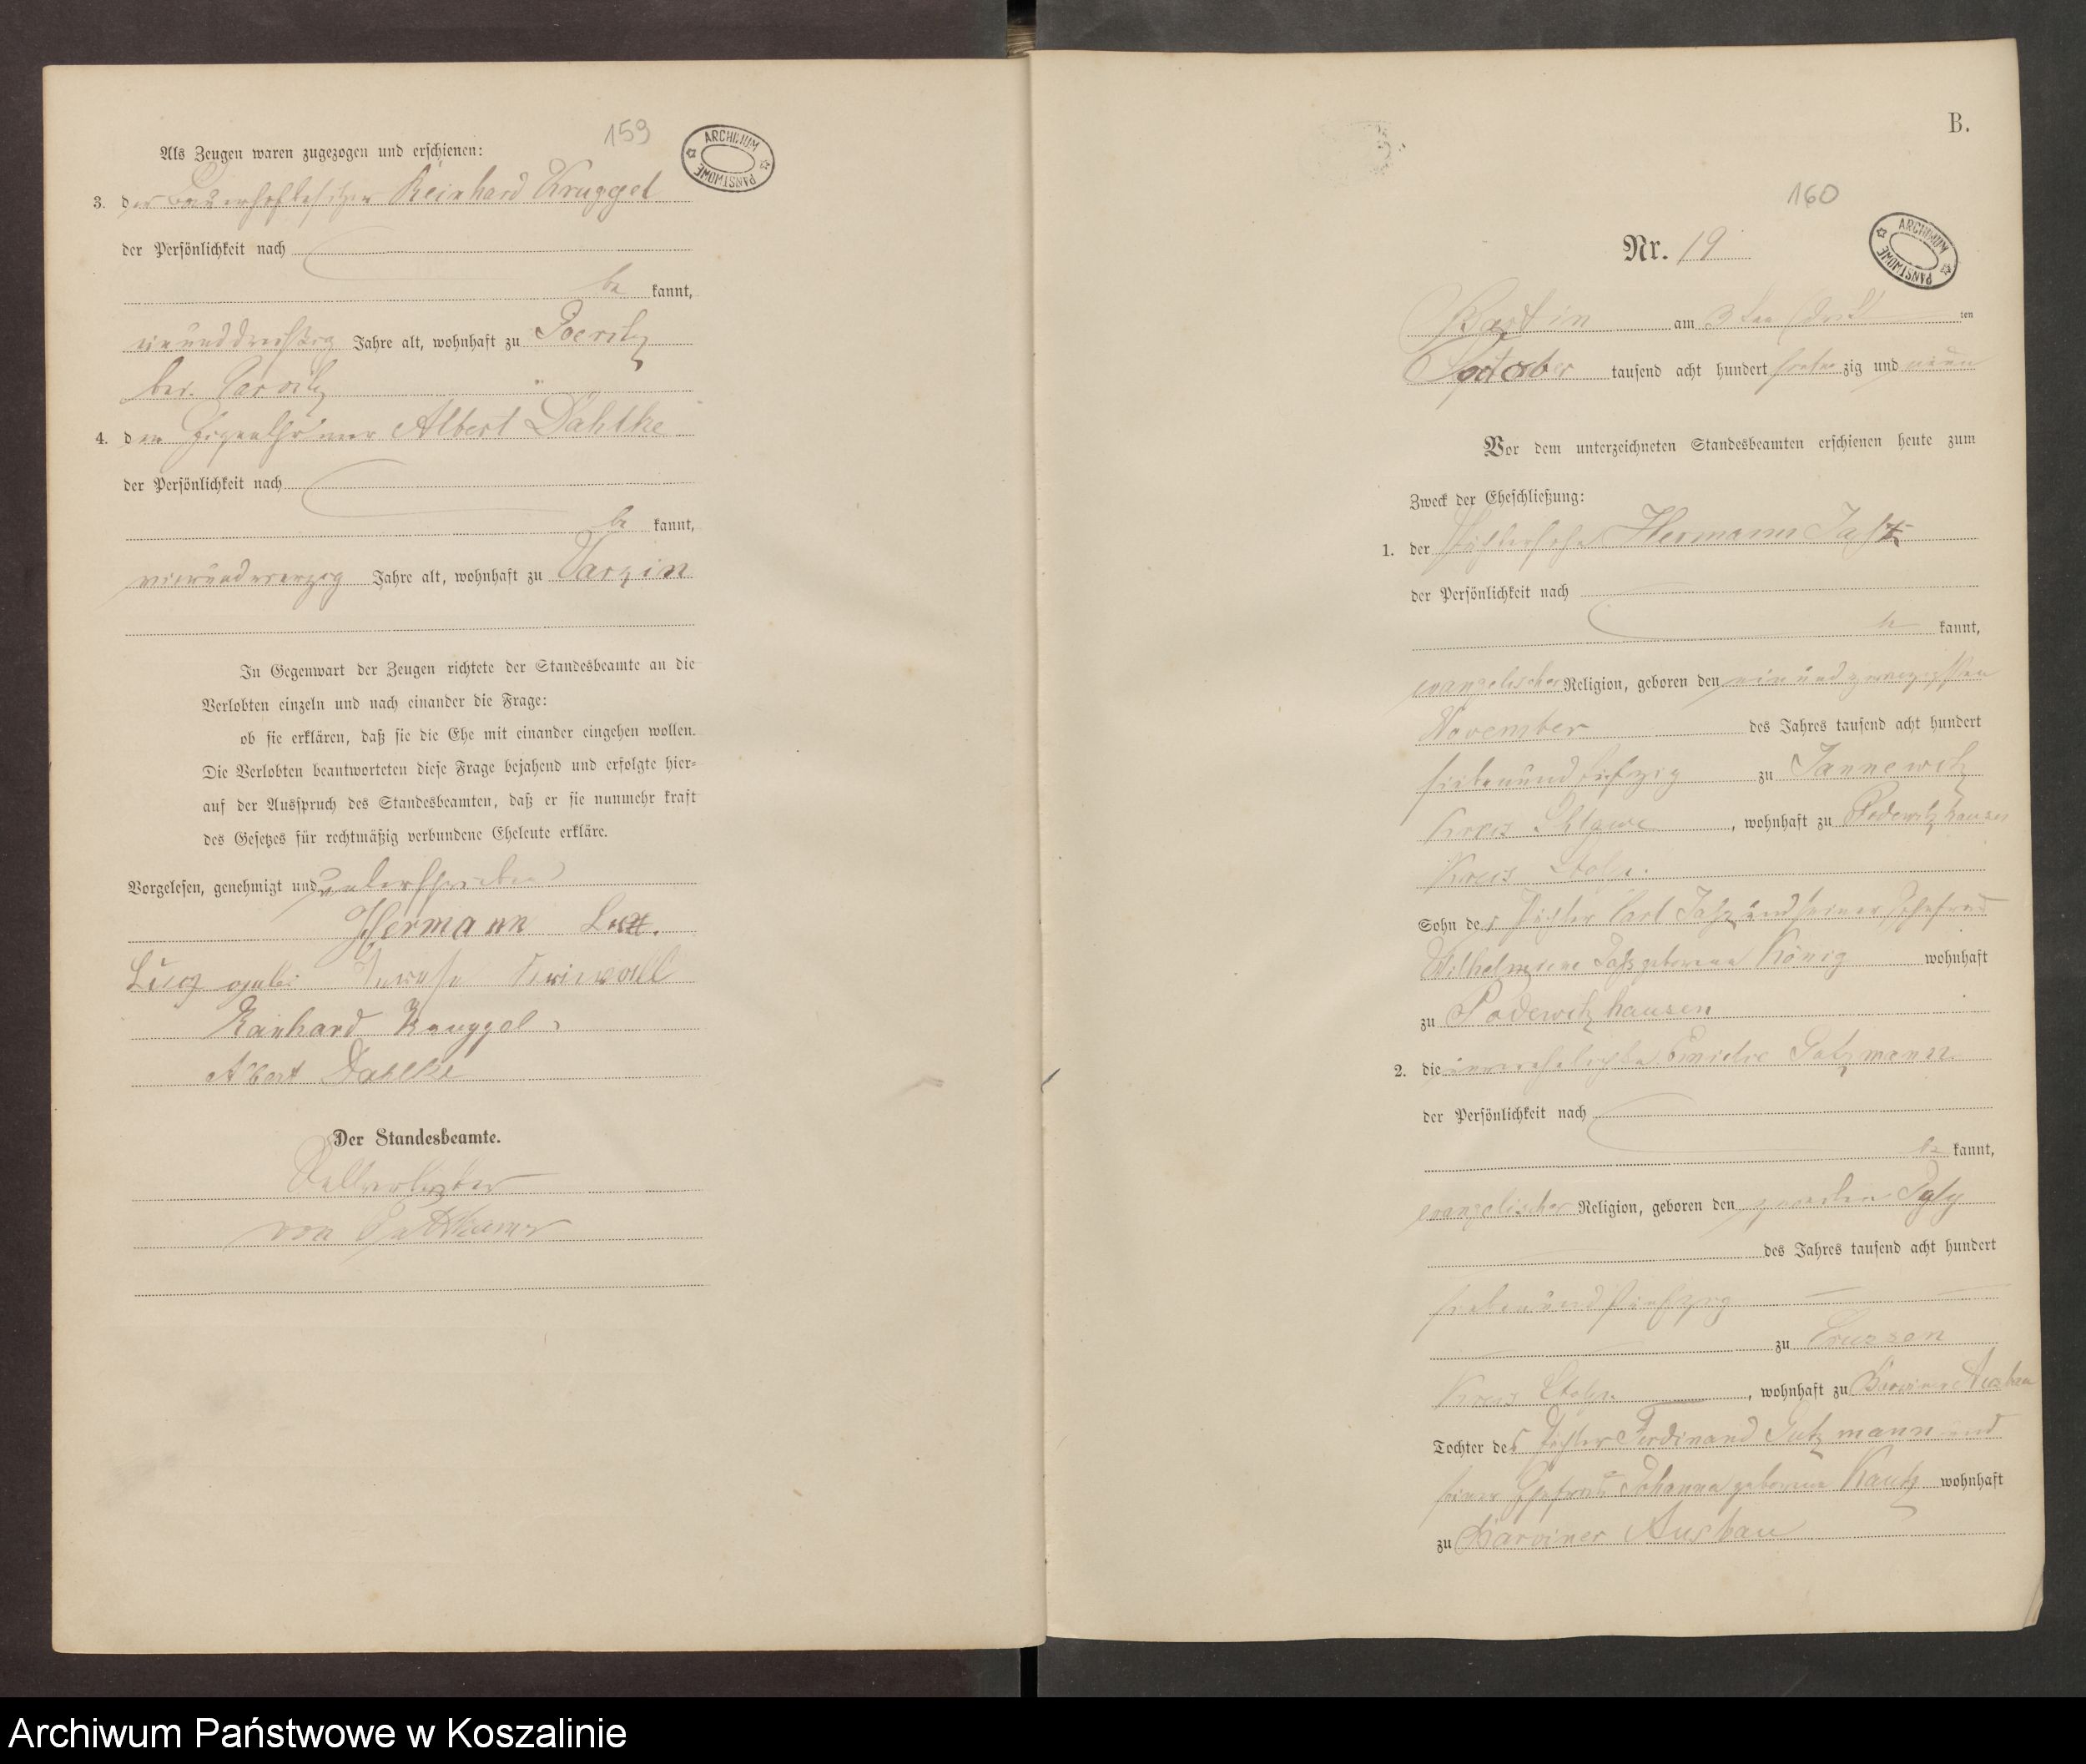 159
ARCHIWUM PAŃSTWOWE
Als Zeugen waren zugezogen und erschienen:
3. der Bauerhofbesitzer Reinhard Kruggel
der Persönlichkeit nach
be kannt,
einunddreißig Jahre alt, wohnhaft zu
4. den Eigenthümer Albert Dahlke
der Persönlichkeit nach
be kannt,
vierundvierzig Jahre alt, wohnhaft zu Varzin
In Gegenwart der Zeugen richtete der Standesbeamte an die
Verlobten einzeln und nach einander die Frage:
ob sie erklären, daß sie die Ehe mit einander eingehen wollen.
Die Verlobten beantworteten diese Frage bejahend und erfolgte hier-
auf der Ausspruch des Standesbeamten, daß er sie nunmehr kraft
des Gesetzes für rechtmäßig verbundene Eheleute erkläre.
Vorgelesen, genehmigt und unterschrieben
Hermann
Reinhard Kruggel
Albert Dahlke
Der Standesbeamte.
von Puttkamer
B.
160
ARCHIWUM PAŃSTWOWE
Nr. 19
Bartin am 3ten (dritten
October tausend acht hundert sieben zig und neun
Vor dem unterzeichneten Standesbeamten erschienen heute zum
Zweck der Eheschließung:
1. der Hermann
der Persönlichkeit nach
be kannt,
evangelischer Religion, geboren den einundzwanzigsten
November des Jahres tausend acht hundert
siebenundfünfzig zu Jannewitz
Kreis Schlawe, wohnhaft zu Podewilshausen
Kreis Stolp.
Sohn des Carl und seiner Ehefrau
Wilhelmine geborene König wohnhaft
zu Podewilshausen
2. die unverehelichte Gutzmann
der Persönlichkeit nach
be kannt,
evangelischer Religion, geboren den zweiten July
des Jahres tausend acht hundert
siebenundfünfzig
zu Crussen
Kreis Stolp, wohnhaft zu Barviner Ausbau
Tochter des Ferdinand Gutzmann und
seiner Ehefrau Johanna geborene wohnhaft
zu Barviner Ausbau
Archiwum Państwowe w Koszalinie